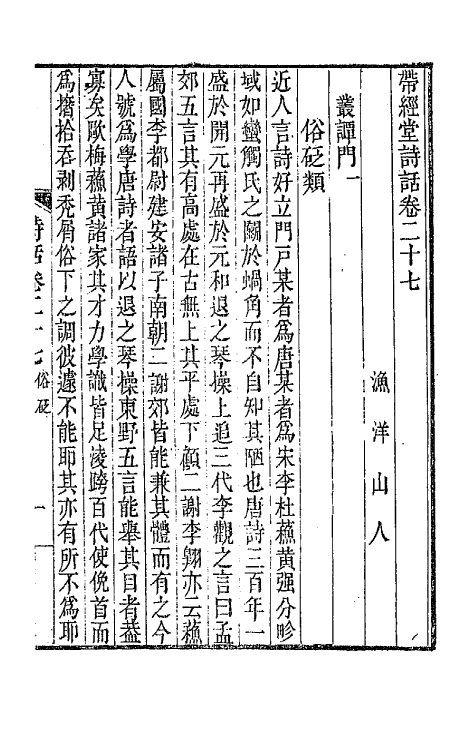 帶經堂詩話卷二十七
漁洋山人
叢譚門一
俗砭類
近人言詩好立門戸某者爲唐某者爲宋李杜蘇黃强分畛
域如蠻觸氏之鬬於蝸角而不自知其陋也唐詩三百年一
盛於開元再盛於元和退之琴操上追三代李觀之言曰孟
郊五言其有高處在古無上其平處下顧二謝李翺亦云蘇
屬國李都尉建安諸子南朝二謝郊皆能兼其體而有之今
人號爲學唐詩者語以退之琴操東野五言能舉其目者葢
寡矣歐梅蘇黃諸家其才力學識皆足凌跨百代使俛首而
爲撏拾吞剥禿屑俗下之調彼遽不能耶其亦有所不爲耶
詩話卷二十七 俗砭 一